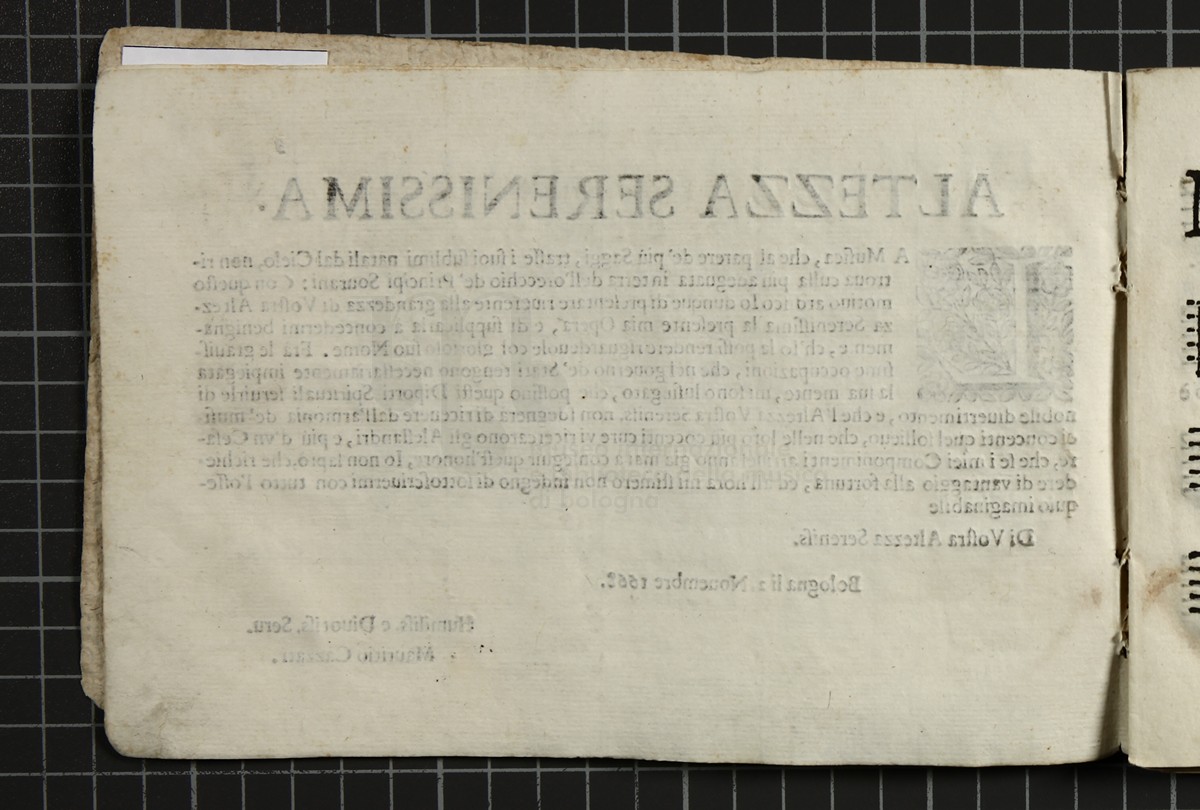 ALTEZZA SERENISSIMA.
LA Musica, che al parere de' più Saggi, trasse i suoi sublimi natali dal Cielo, non ri-
troua culla più adeguata in terra dell'orecchio de' Principi Sourani: Con questo
motiuo ardisco Io dunque di presentare riuerente alla grandezza di Vostra Altez-
za Serenissima la presente mia Opera, e di supplicarla à concedermi benigna-
mente, ch'Io la possi rendere riguardeuole col glorioso suo Nome. Frà le grauis-
sime occupazioni, che nel gouerno de' Stati tengono necessariamente impiegata
la sua mente, mi sono lusingato, che possino questi Diporti Spirituali seruirle di
nobile diuertimento, e che l'Altezza Vostra Sereniss. non sdegnerà di riceuere dall'armonia de' musi-
ci concenti quel sollieuo, che nelle loro più cocenti cure vi ricercarono gli Alessandri, e più d'vn Cesa-
re, che se i miei Componimenti
dere di vantaggio alla fortuna, ed all'hora mi stimerò non indegno di sottoscriuermi con tutto l'osse-
quio imaginabile
Di Vostra Altezza Sereniss.
Bologna li 2. Nouembre 1668.
Humiliss. e Diuotiss. Seru.
Mauritio Cazzati.
di bologna